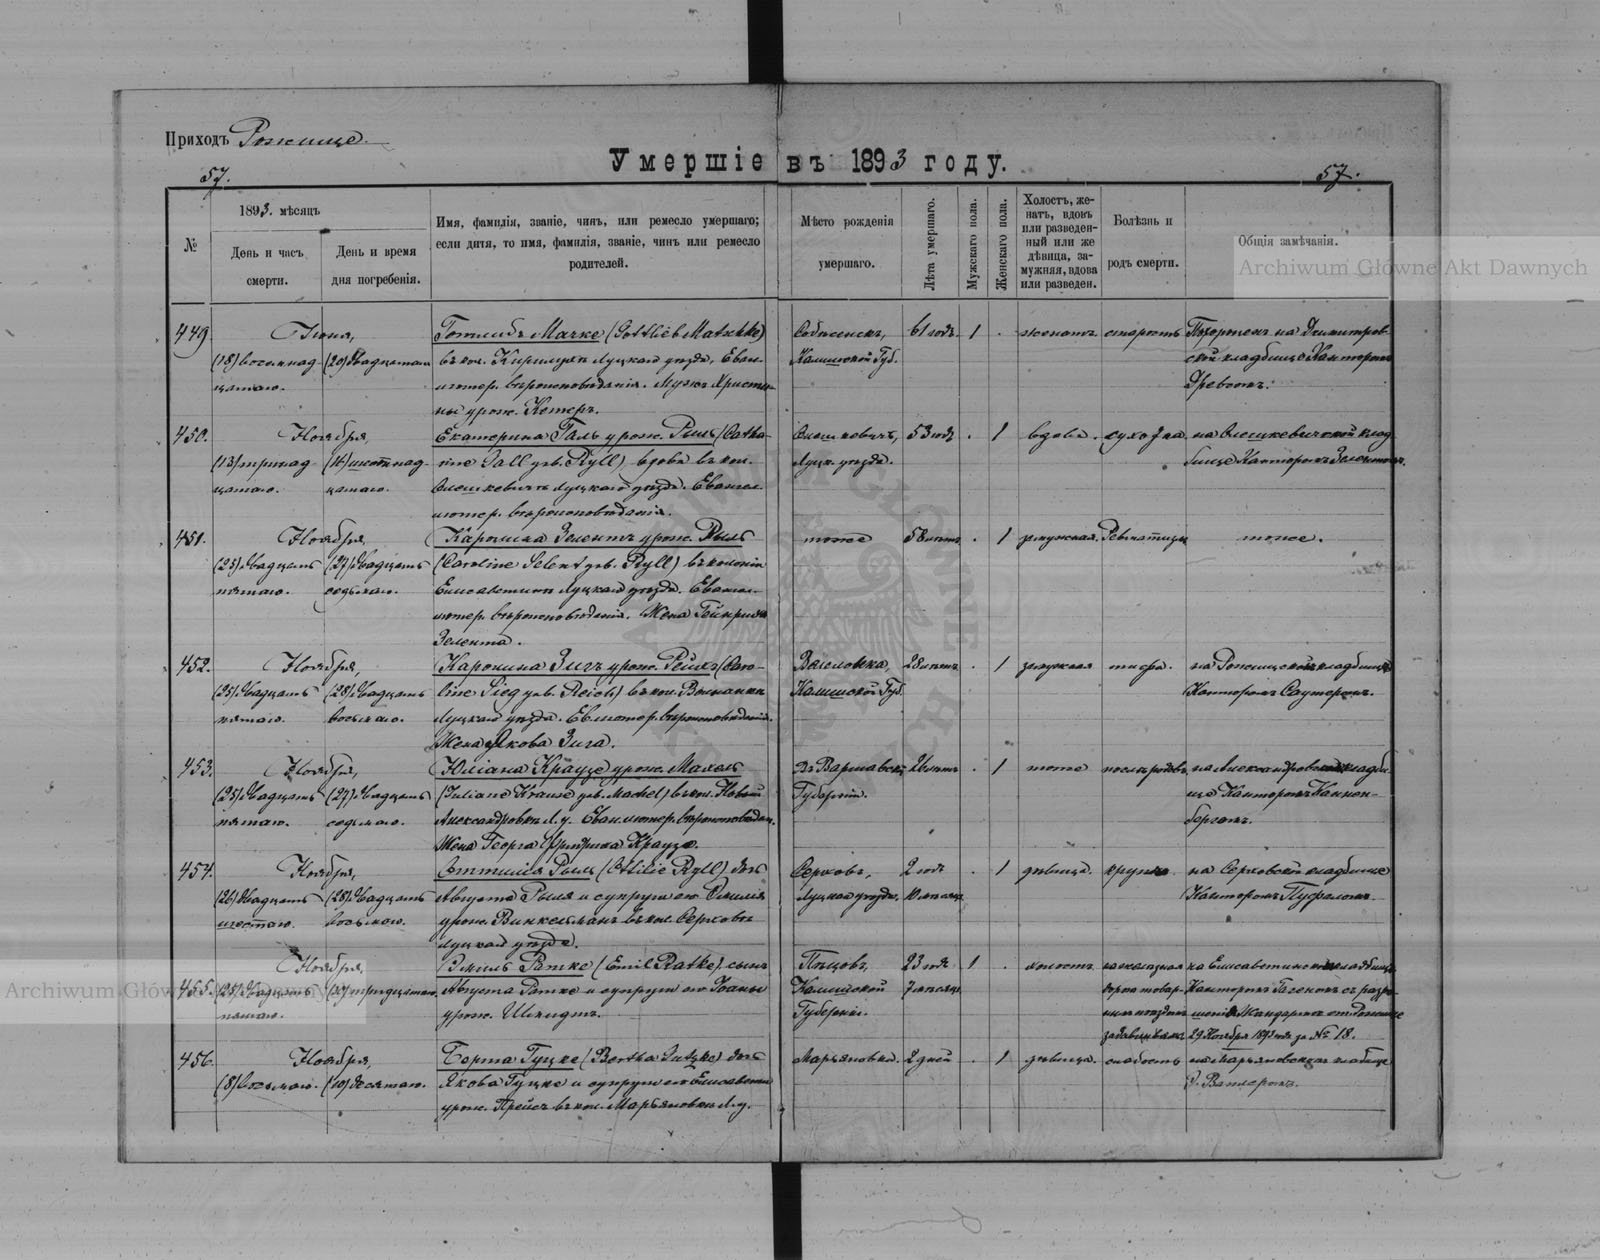 Приходъ Рожище.
Умершіе въ 1893 году.
57.
57.
№
1893. мѣсяцъ
День и часъ смерти.
День и время дня погребенія.
Имя, фамилія, званіе, чинъ, или ремесло умершаго;
если дитя, то имя, фамилія, званіе, чинъ или ремесло
родителей.
Мѣсто рожденія
умершаго.
Лѣта умершаго.
Мужскаго пола.
Женскаго пола.
Холостъ, же-
натъ, вдовъ
или разведен-
ный или же
дѣвица, за-
мужняя, вдова
или разведен.
Болѣзнь и
родъ смерти.
Общія замѣчанія.
Archiwum Główne Akt Dawnych
449.
(18) восемнад-
цатаго.
(20) двадцатаго
Готлибъ Мачке (Gottlieb Matschke)
въ кол. Луцкаго уѣзда, Еван.
лютер. вѣроисповѣданія. Мужъ Христи-
ны урож.
Калишской Губ.
61 годъ
1
.
женатъ
старость
Похороненъ на
кладбище Канторомъ
450.
Ноября,
(13) тринад-
цатаго.
(16) шестнад-
цатаго.
Екатерина Галь урож. Рыль (Catha-
rine Gall geb. Ryll) вдова въ кол.
Олешкевичъ Луцкаго уѣзда. Евангел.
лютер. вѣроисповѣданія.
Олешковичъ,
Луцк. уѣзда.
53 год.
.
1
вдова.
сухотка
на Олешкевичской клад-
бище Канторомъ Зелентомъ.
451.
Ноября,
(25) двадцать
пятаго.
(27) двадцать
седьмаго.
Каролина Зелентъ урож. Рыль
(Caroline Selent geb. Ryll) въ колоніи
Елисаветинъ Луцкаго уѣзда. Евангел.
лютер. вѣроисповѣданія. Жена Гейнриха
Зелента.
тоже
58 лѣтъ
.
1
замужняя.
тоже.
452.
Ноября,
(25) двадцать
пятаго.
(28) двадцать
восьмаго.
Каролина Зигъ урож. Рейхъ (Caro-
line Sieg geb. Reich) въ кол.
Луцкаго уѣзда. Ев. лютер. вѣроисповѣданія.
Жена Якова Зига.
Калишской Губ.
28 лѣтъ
.
1
замужняя
тифъ.
на Рожищской кладбище
Канторомъ Саутеромъ.
453.
Ноября,
(25) двадцать
пятаго.
(27) двадцать
седьмаго.
Юліана Краузе урож. Махель
(Juliane Krause geb. Machel) въ кол. Новой
Александровкѣ Л. у. Еван. лютер. вѣроисповѣдан.
Жена Георга Фридриха Краузе.
Въ Варшавской
Губерніи.
26 лѣтъ
.
1
тоже
послѣ родовъ
на Александровской кладби-
ще Канторомъ Каннен-
бергомъ.
454.
Ноября,
(26) двадцать
шестаго.
(28) двадцать
восьмаго.
Оттилія Рыль (Ottilie Ryll) дочь
Августа Рыля и супруги его Эмилія
урож. Винкельманъ въ кол. Серховъ
Луцкаго уѣзда.
Серховъ,
Луцкаго уѣзда.
2 год.
10 мѣсяц.
.
1
дѣвица.
крупъ
на Серховской кладбище
Канторомъ Пуфаломъ.
455.
Ноября,
(25) двадцать
пятаго.
(30) тридцатаго.
Эмиль Ратке (Emil Ratke) сынъ
Августа Ратке и супруги его
урож. Шмидтъ.
Калишской
Губерніи.
23 год.
7 мѣсяц.
1
.
холостъ.
на желѣзной
дорогѣ товар-
нымъ поѣздомъ
на Елисаветинской кладбище
Канторомъ съ разрѣ-
шенія Жандарма
29 Ноября 1893 года за № 18.
456.
Ноября,
(8) восьмаго.
(10) десятаго.
Берта Гуцке (Bertha Gutzke) дочь
Якова Гуцке и супруги его Елисаветы
урож. Прейсъ въ кол. Марьяновка Л. у.
Марьяновка.
2 дней
.
1
дѣвица.
слабость
на Марьяновской кладбище
Archiwum Główne Akt Dawnych